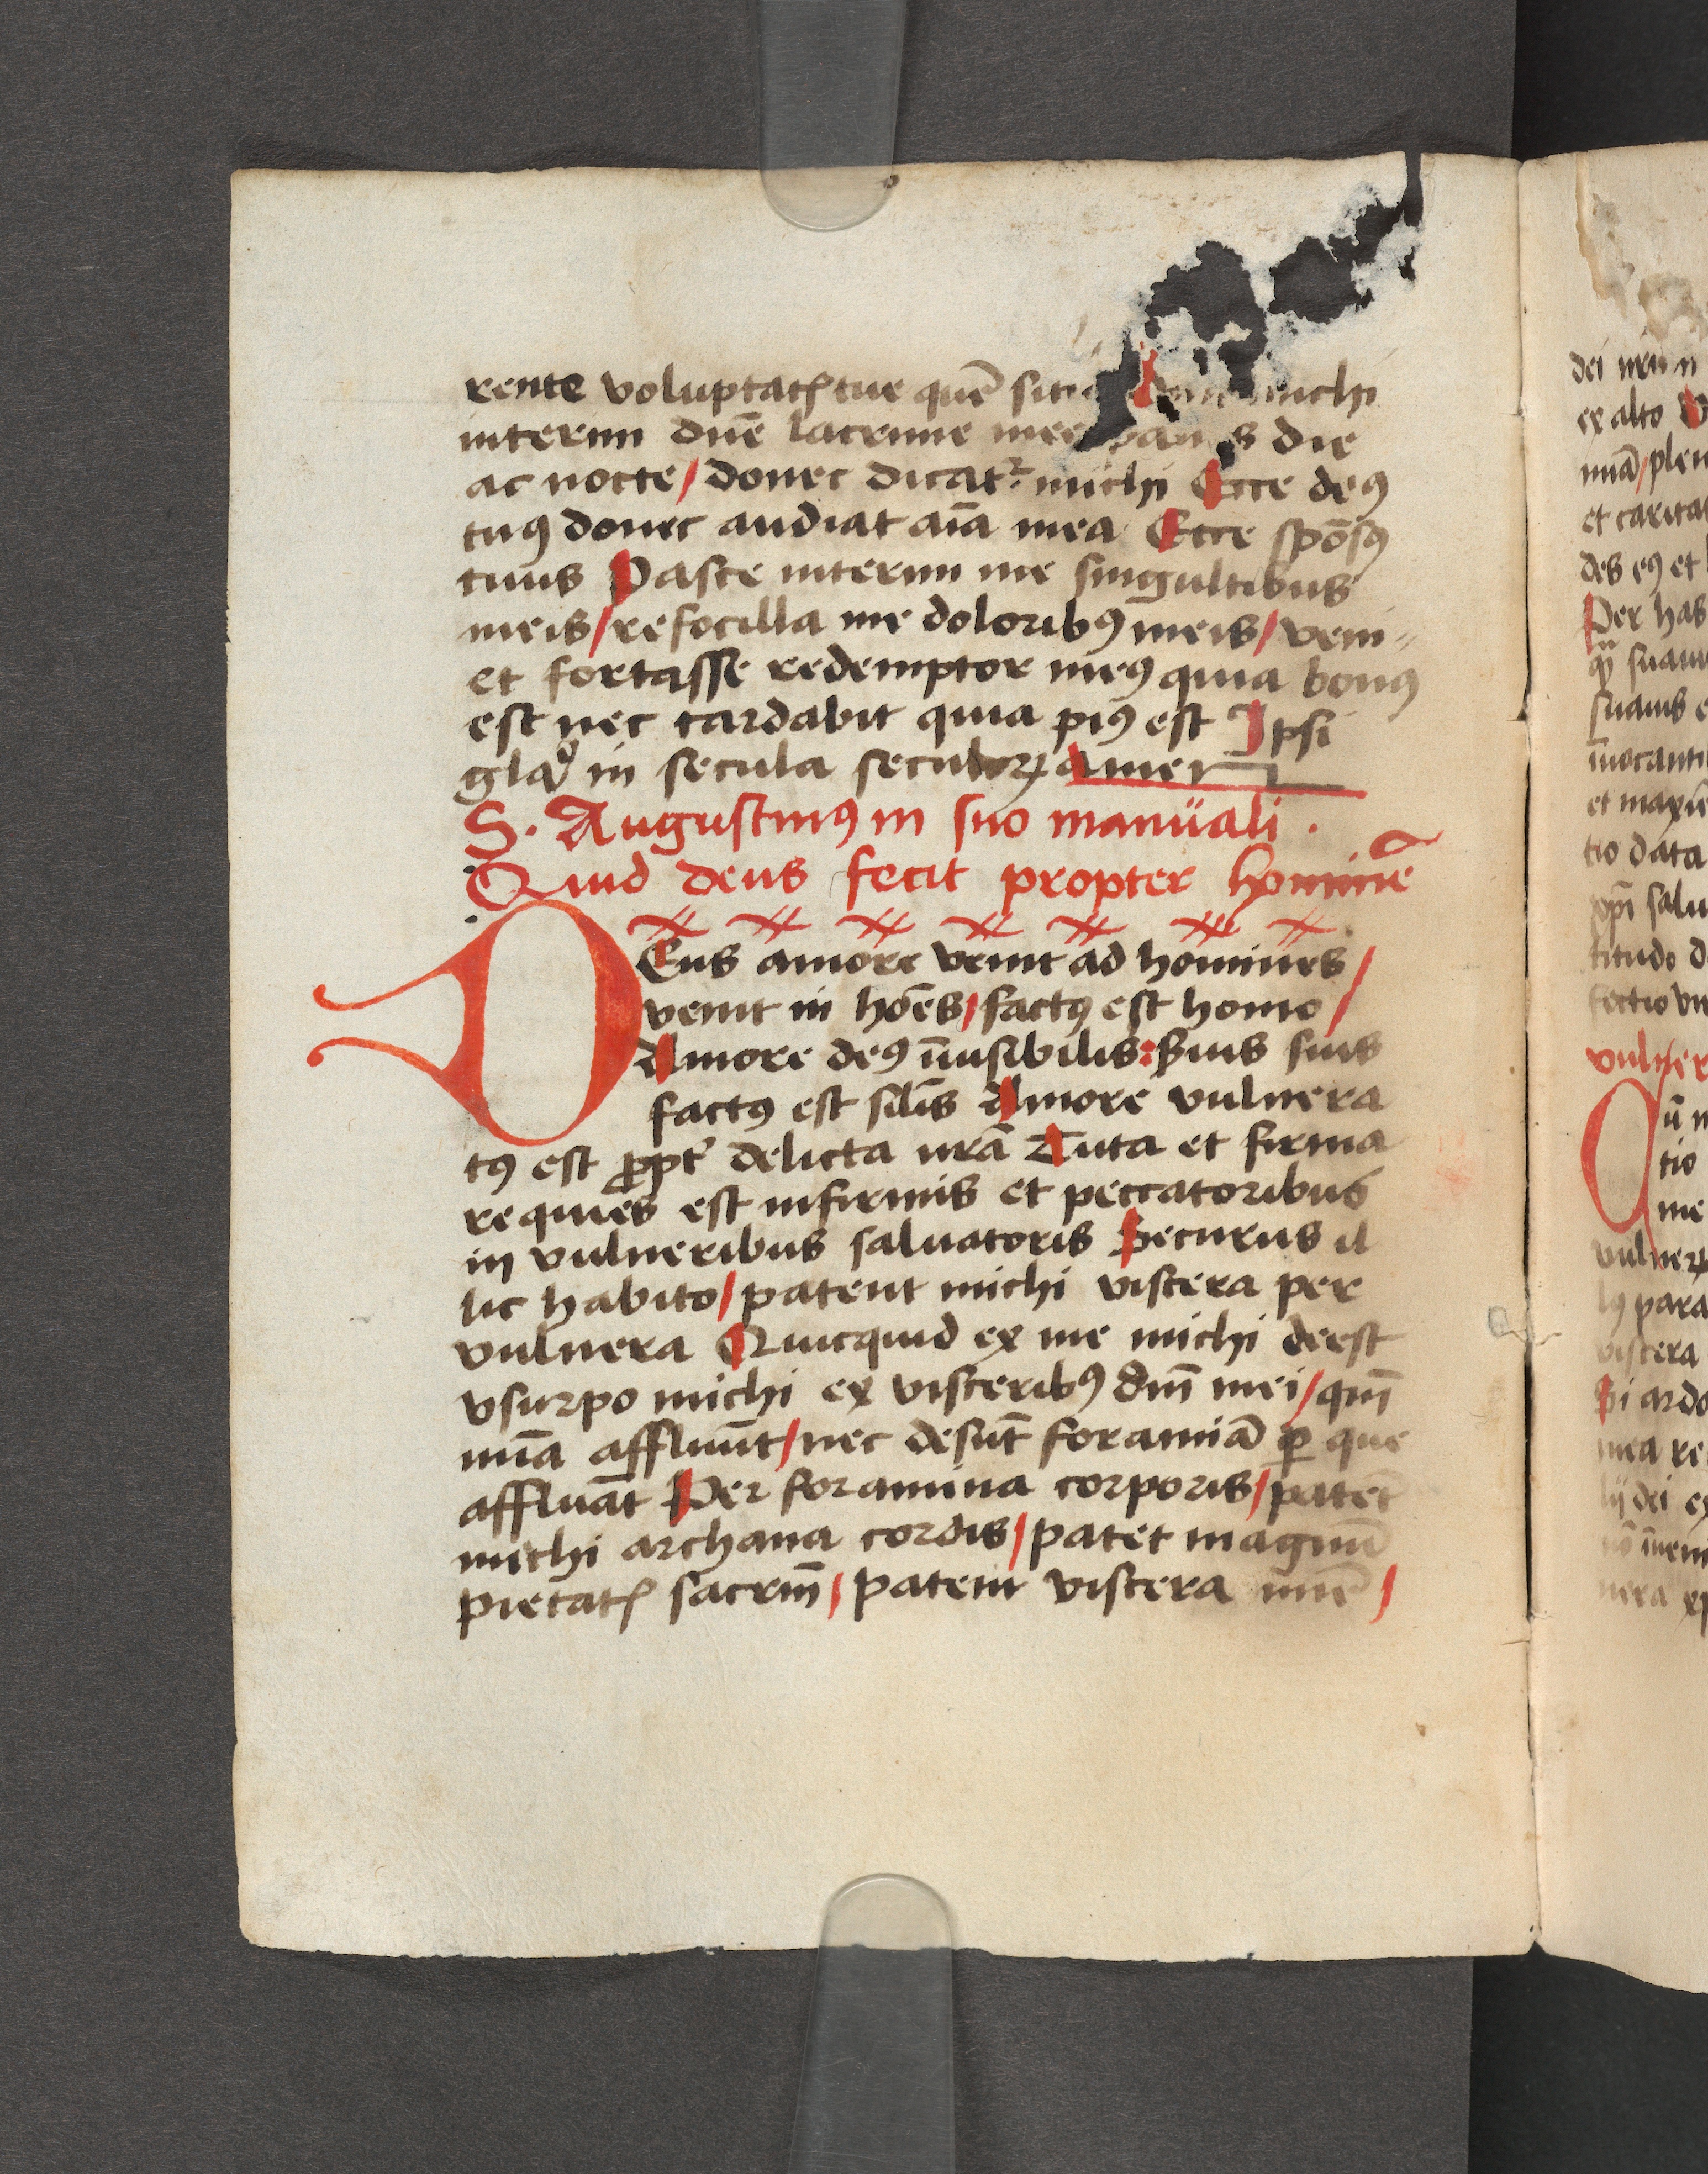 rente voluptatꝭ tue quē siti michi
interim dn̄e lacrime mee die
ac nocte / donec dicat᷑ michi Ecce deꝰ
tuꝰ donec audiat aīa mea Ecce spōsꝰ
tuus Pasce interim me singultibus
meis / refocilla me doloribꝰ meis / veni
et fortasse redemptor meꝰ quia bonꝰ
est nec tardabit quia piꝰ est Ipsi
glaͦ in secula seculoꝝ amen
S. Augustinꝰ in suo manuali .
Quid deus fecit propter hominē
DEus amore venit ad homines /
venit in hoēs / factꝰ est homo /
Amore deꝰ īuisibilis : Suis suis
factꝰ est silīs Amore vulnera
tꝰ est ꝓpt̄ delicta nrā Tuta et firma
requies est infirmis et peccatoribus
in vulneribus saluatoris Securus il
lic habito / patent michi viscera per
vulnera Quicquid ex me michi deest
vsurpo michi ex visceribꝰ dn̄i mei / qm̄
mīa affluūt / nec desūt foramiā ꝑ que
affluāt Per foramina corporis / patēt
michi archana cordis / patet magnū
pietatꝭ sacrm̄ / patent viscera mie /
dei nr̄i
ex alto
nuā / plen
et caritat
des eꝰ et
Per has
suaui
suauis e
īuocanti
et maxīe
tio data
salu
titudo d
fectio
vulner
Qū
tio
me
vulneꝝ
lꝰ para
viscera
Si ardo
mea re
lij dei ex
nō īueni
nera